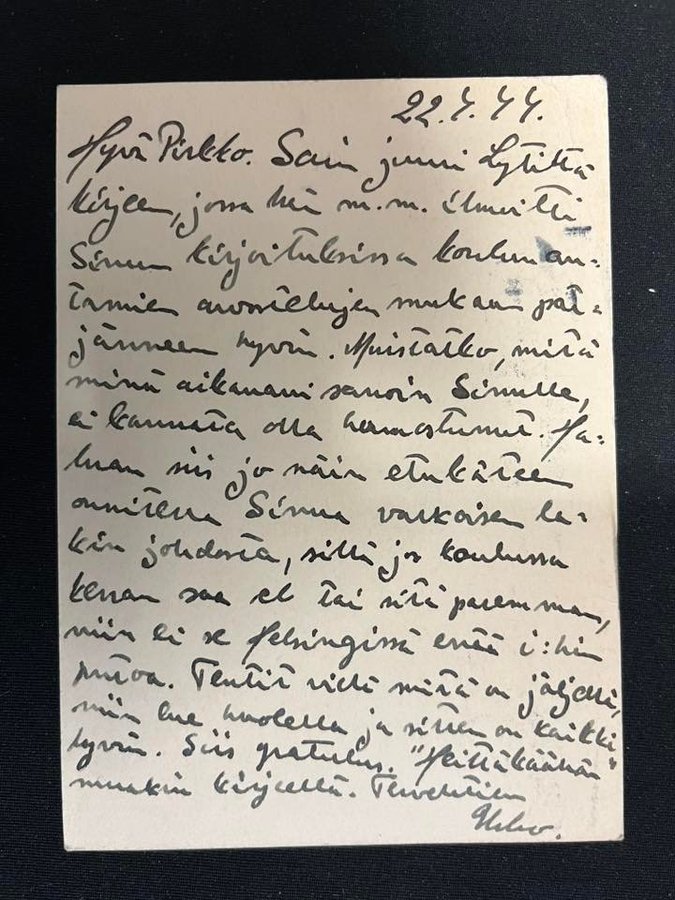 22.4.44.
Hyvä Pirkko. Sain juuri
kirjeen, jossa hän m.m. ilmoitti
Sinun kirjoituksissa koulun an-
tamien arvostelujen mukaan pär-
jänneen hyvin. Muistatko, mitä
minä aikanani sanoin Sinulle,
ei kannata olla hermostunut. Ha-
luan siis jo näin etukäteen
onnitella Sinua valkoisen la-
kin johdosta, sillä jos koulussa
kerran saa cl tai sitä paremman,
niin ei se Helsingissä enää i:hin
putoa. Tentit vielä mitä on jäljellä,
niin lue huolella ja sitten on kaikki
hyvin. Siis gratulus. "Heittäkäähän"
munkin kirjeellä. Tervehtien